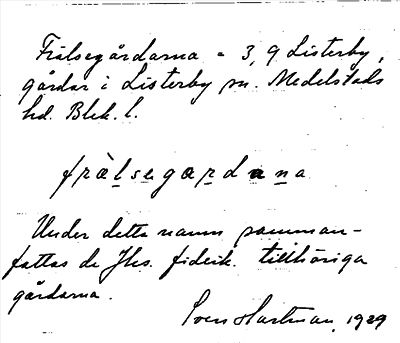 Frälsegårdarna = 3, 9 Listerby,
gårdar i Listerby sn. Medelstads
hd. Blek. l.
frälsegardana
Under detta namn samman-
fattas de Jhs. fideik. tillhöriga
gårdarna.
Sven Hartman, 1929